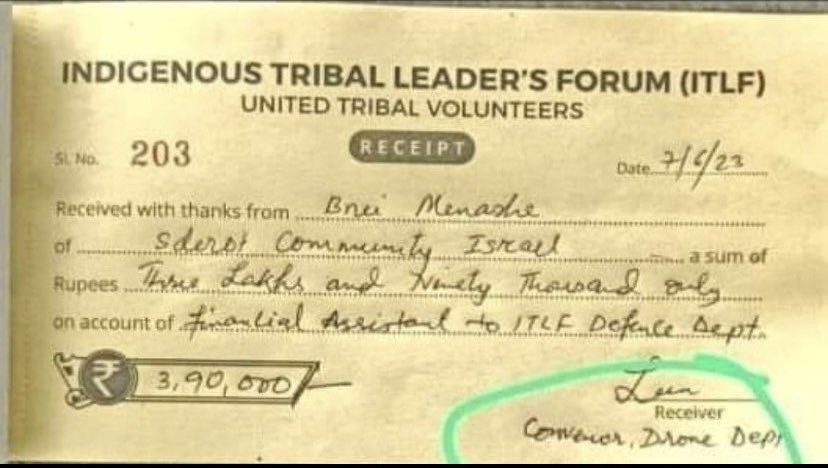 INDIGENOUS TRIBAL LEADER'S FORUM (ITLF)
UNITED TRIBAL VOLUNTEERS
RECEIPT
Sl. No. 203
Date 7/6/23
Received with thanks from Bnei Menashe
of Sderot Community Israel a sum of
Rupees Three Lakhs and Ninety Thousand only
on account of financial Assistant to ITLF Defence Dept.
₹ 3,90,000/-
Receiver
Convenor, Drone Dept